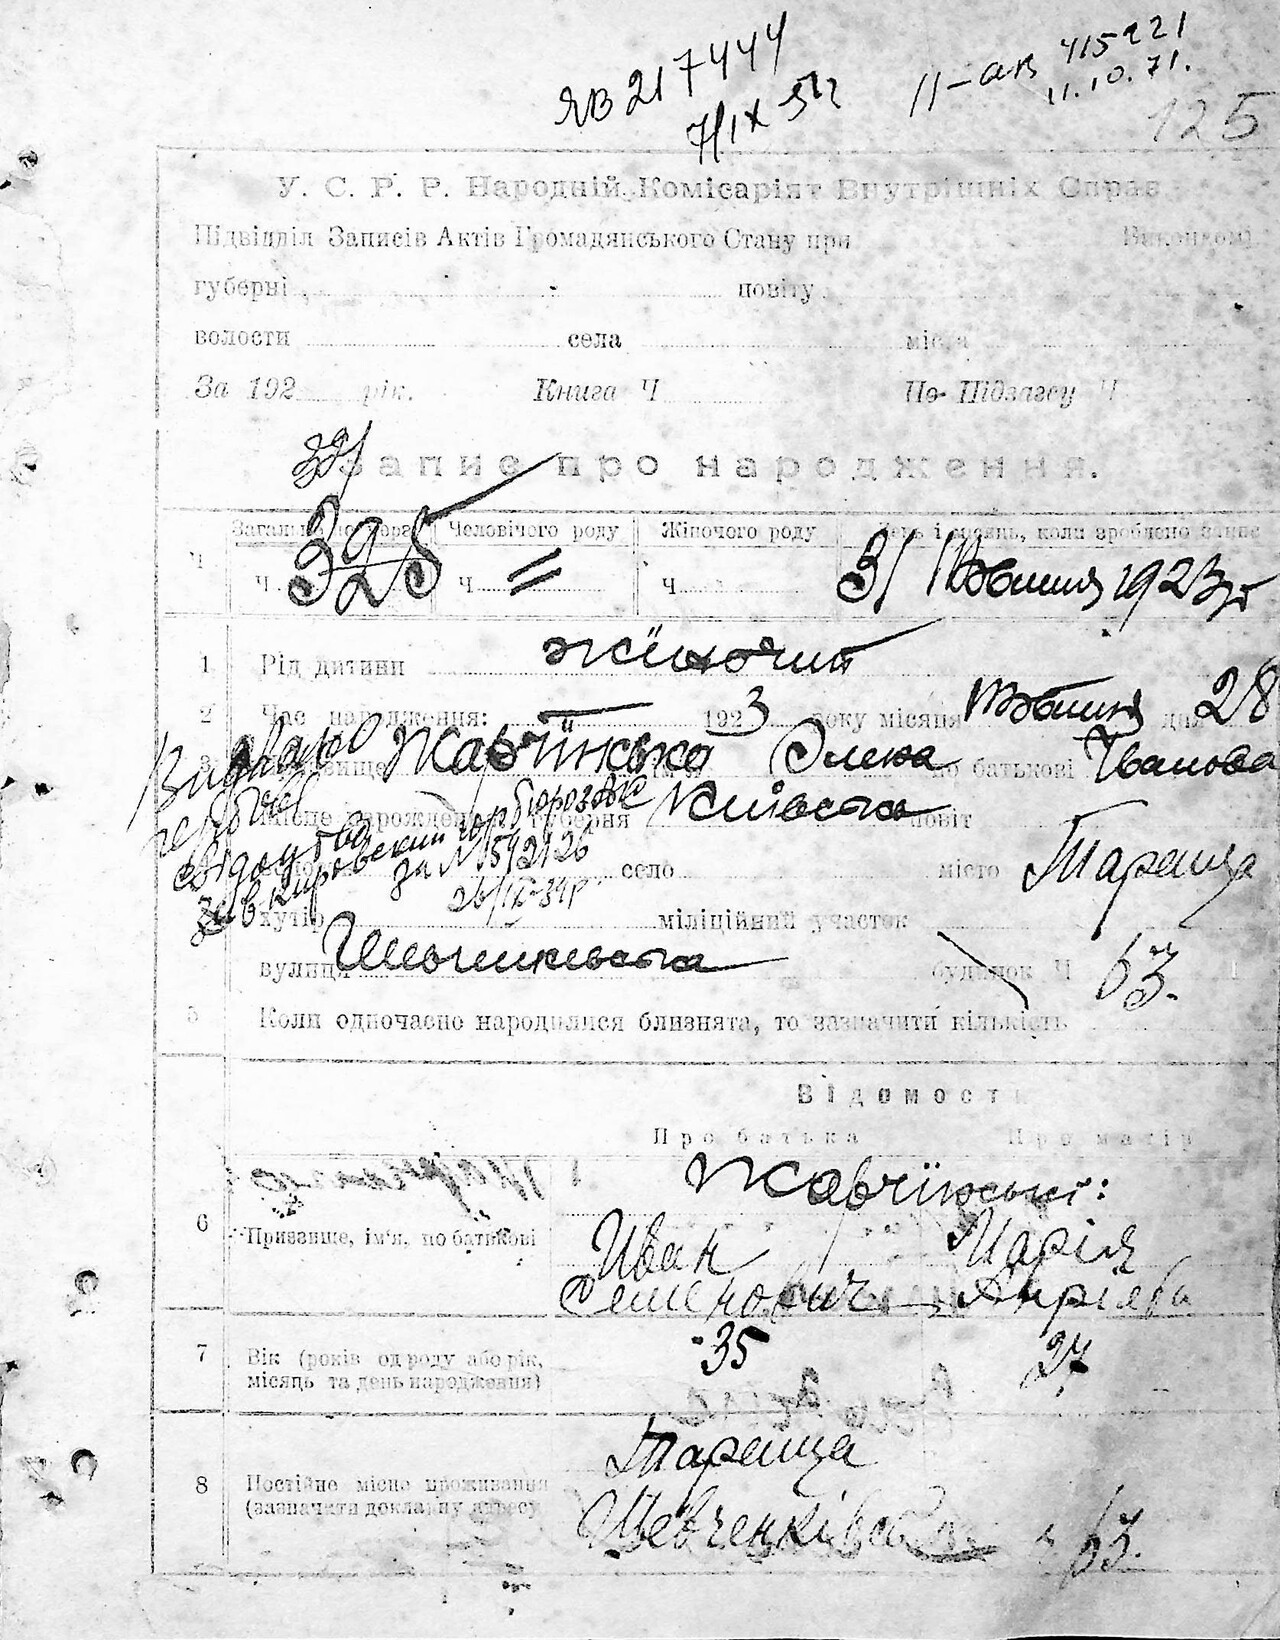 ЯВ 217444
7/IX 54
II-ав 415221
11.10.71.
125
У. С. Р. Р. Народній Комісаріят Внутрішніх Справ
Підвідділ Записів Актів Громадянського Стану при Виконкомі
губерні повіту
волости села міста
За 192 рік. Книга Ч По Підзагсу Ч
331
Запис про народження.
Загальна Человічого роду Жіночого роду День і місяць, коли зроблено запис
Ч Ч. 325 Ч = Ч 31 Жовтня 1923 г
1 Рід дитини жіночий
2 Час народження: 1923 року місяця Жовтня дня 28
3 Жавчінська Олена по батькові Іванова
Місце народження губерня Київська повіт
село місто Тараща
хутір міліційний участок
вулиця Шевченківська будинок Ч 63.
Видано
свідоцтво
за № 542126
5 Коли одночасно народилися близнята, то зазначити кількість
Відомости
Про батька Про матір
Жавчінські:
6 Призвище, ім'я, по батькові Иван Марія
Семенович Андріева
7 Вік (років од роду або рік, місяць та день народження) 35 27
8 Постійне місце проживання (зазначити докладну адресу) Тараща
Шевченківська 63.